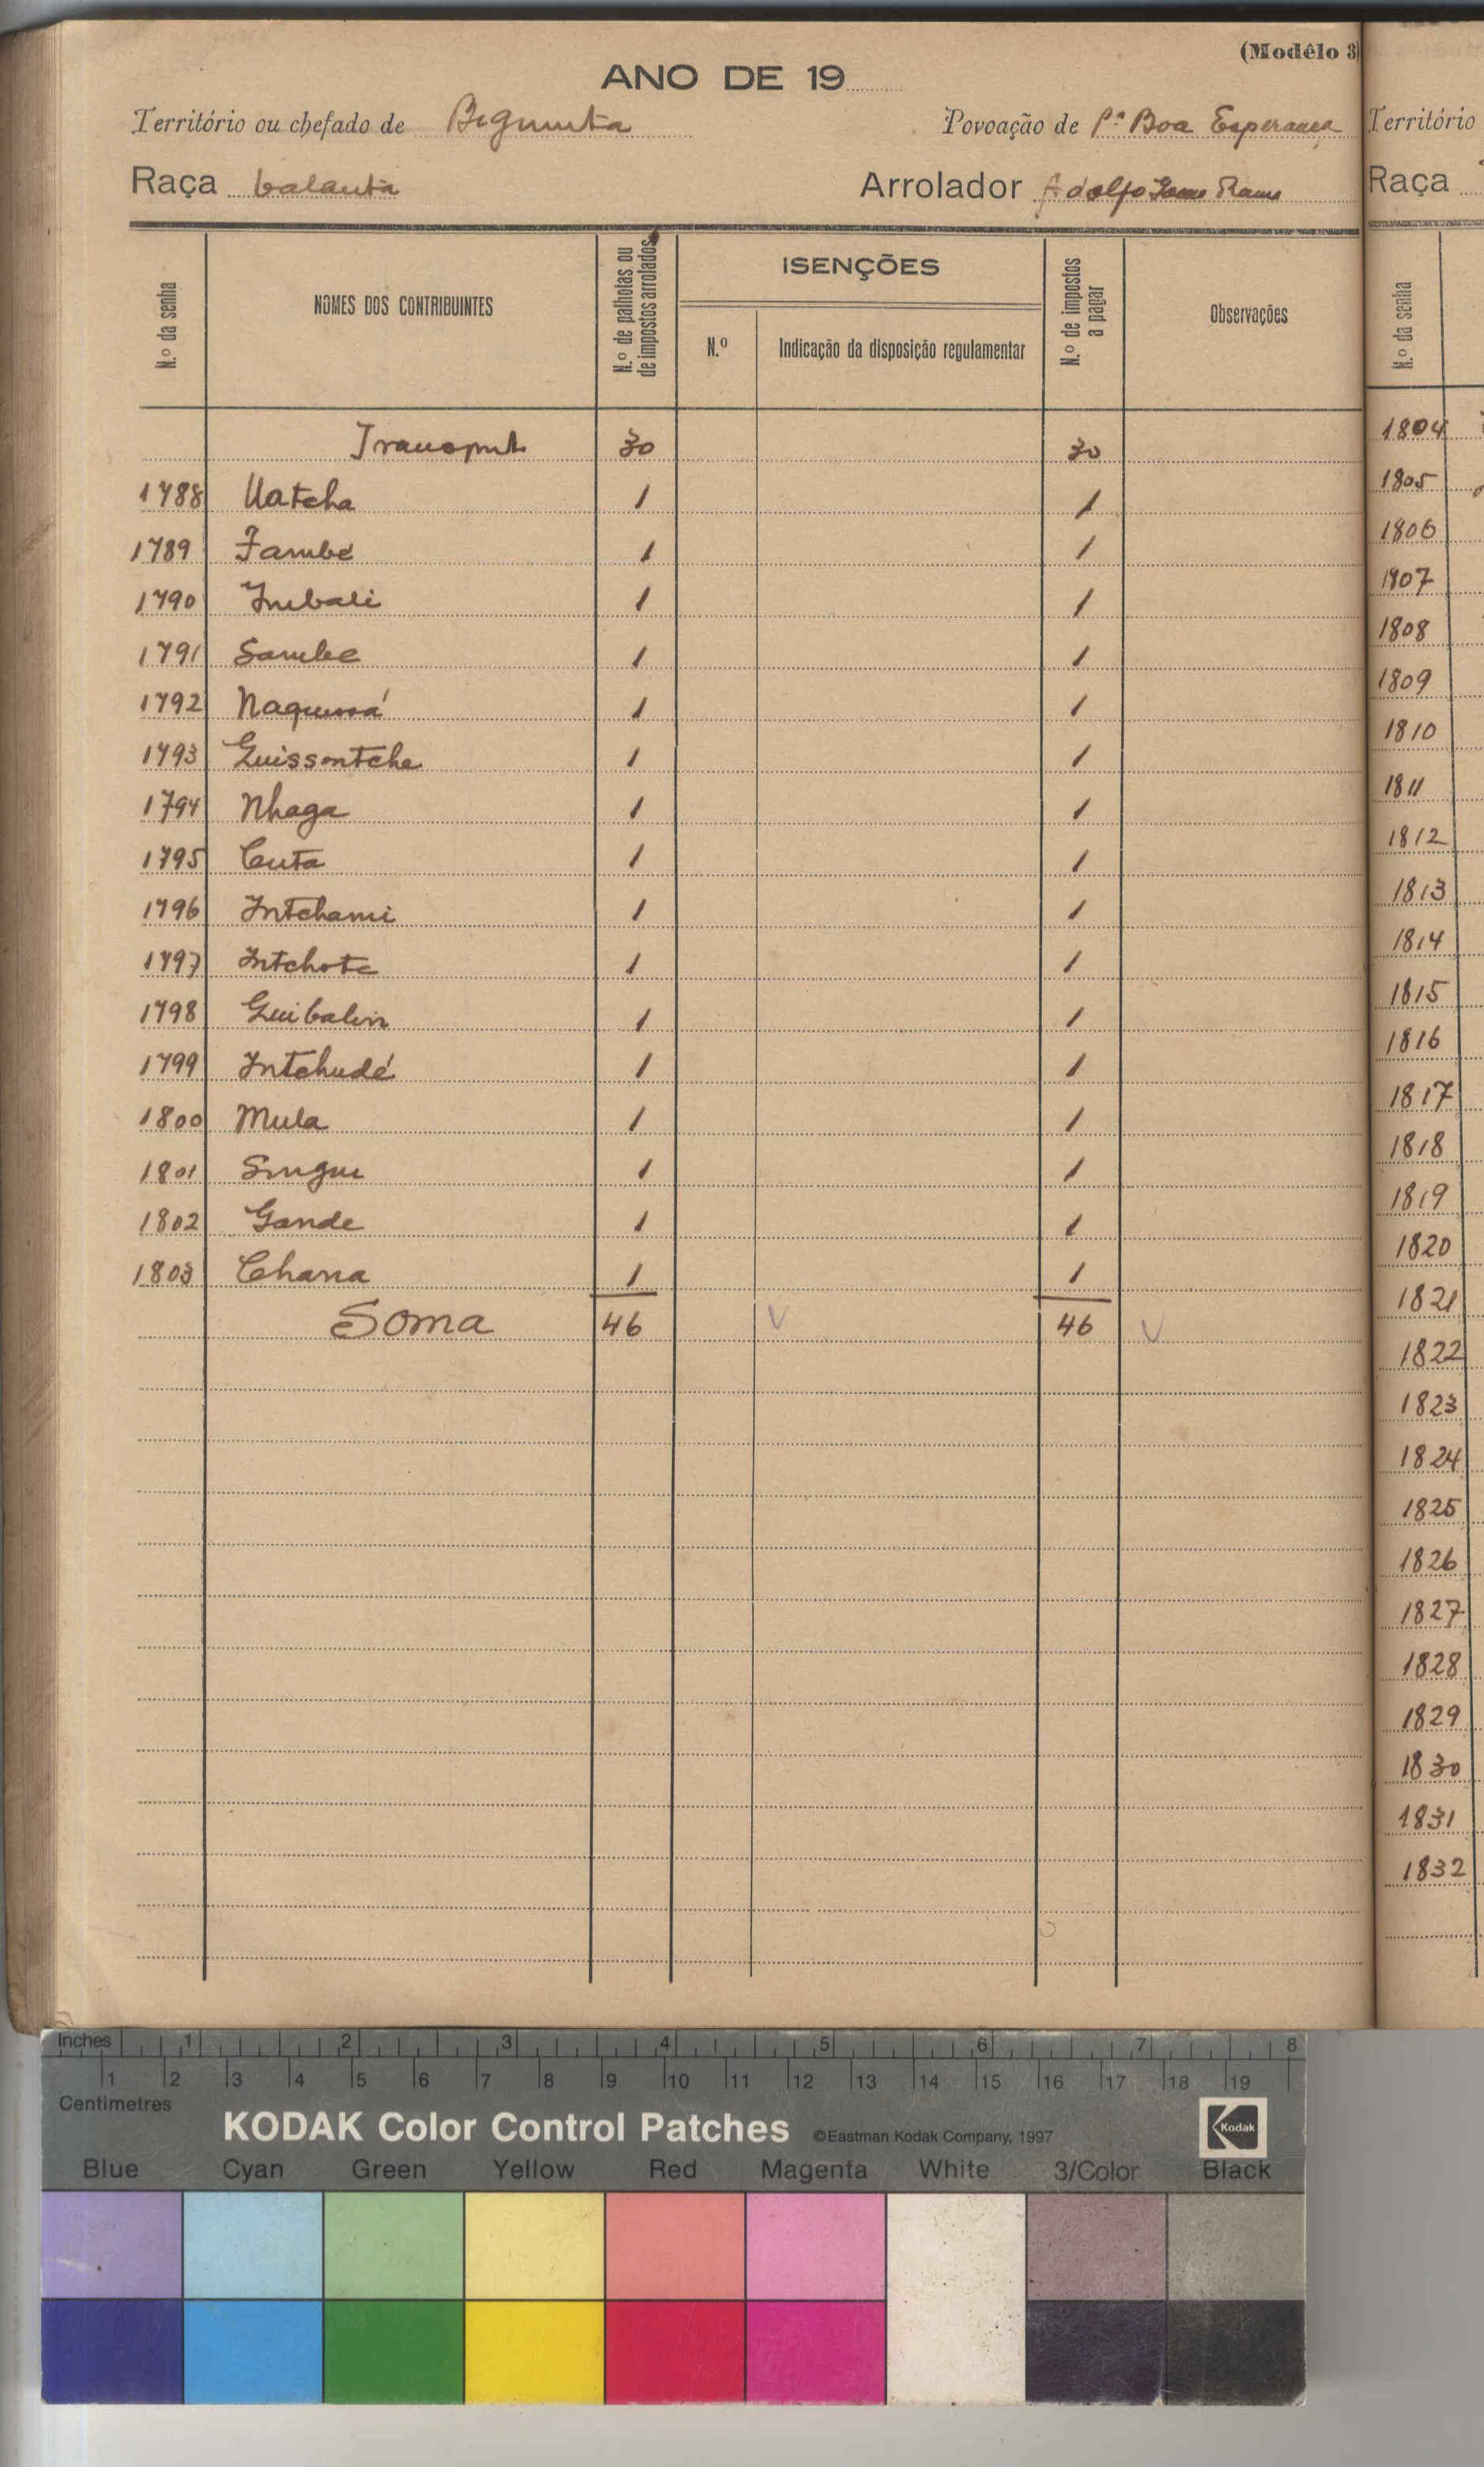 (Modêlo 3)
ANO DE 19
Território ou chefado de
Povoação de Pª Boa Esperança
Raça balanta
Arrolador Adolfo Gomes Ramos
N.º da senha
NOMES DOS CONTRIBUINTES
N.º de palhotas ou de impostos arrolados
ISENÇÕES
N.º
Indicação da disposição regulamentar
N.º de impostos a pagar
Observações
Transporte 30 30
1788 Uatcha 1 1
1789 Fambé 1 1
1790 Imbali 1 1
1791 Sambe 1 1
1792 1 1
1793 Guissontche 1 1
1794 Nhaga 1 1
1795 Cuta 1 1
1796 Intchami 1 1
1797 Intchote 1 1
1798 Guibalin 1 1
1799 Intchudé 1 1
1800 Mula 1 1
1801 1 1
1802 Gande 1 1
1803 Chana 1 1
Soma 46 46
Território
Raça
N.º da senha
1804
1805
1806
1807
1808
1809
1810
1811
1812
1813
1814
1815
1816
1817
1818
1819
1820
1821
1822
1823
1824
1825
1826
1827
1828
1829
1830
1831
1832
Inches 1 2 3 4 5 6 7 8
1 2 3 4 5 6 7 8 9 10 11 12 13 14 15 16 17 18 19
Centimetres
KODAK Color Control Patches ©Eastman Kodak Company, 1997 Kodak
Blue Cyan Green Yellow Red Magenta White 3/Color Black